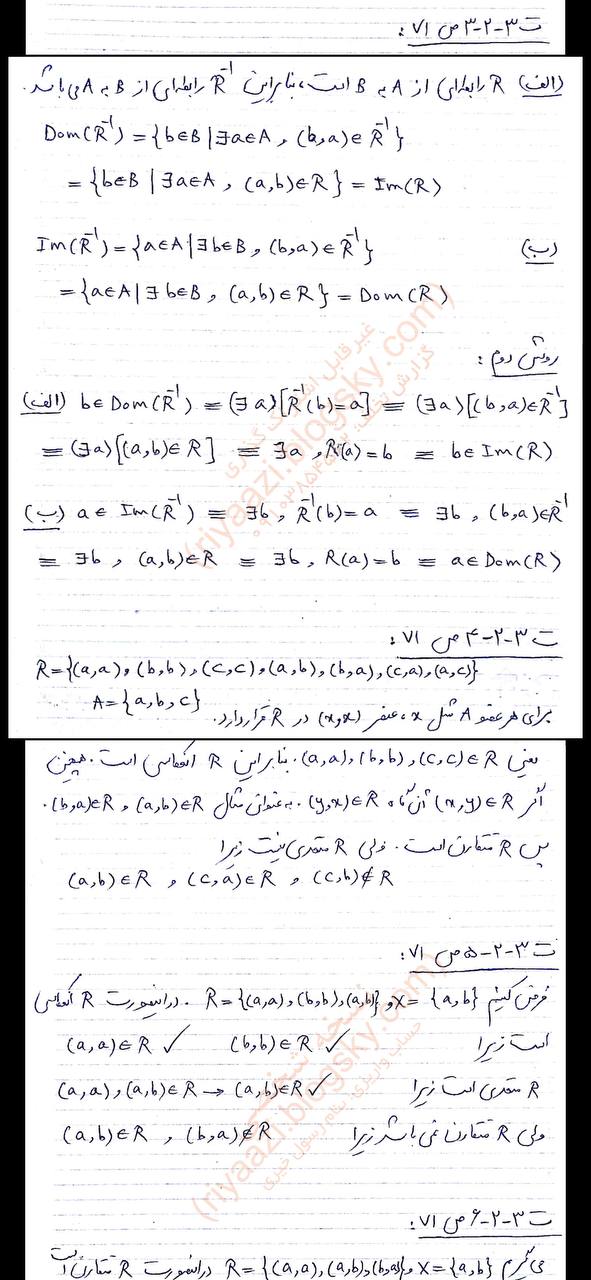 ت ۳-۲-۳ ص ۷۱:
(الف) R رابطه‌ای از A به B است، بنابراین R⁻¹ رابطه‌ای از B به A می‌باشد.
Dom(R⁻¹) = {b∈B | ∃a∈A , (b,a)∈R⁻¹}
= {b∈B | ∃a∈A , (a,b)∈R} = Im(R)
(ب) Im(R⁻¹) = {a∈A | ∃b∈B , (b,a)∈R⁻¹}
= {a∈A | ∃b∈B , (a,b)∈R} = Dom(R)
روش دوم:
(الف) b∈Dom(R⁻¹) ≡ (∃a)[R⁻¹(b)=a] ≡ (∃a)[(b,a)∈R⁻¹]
≡ (∃a)[(a,b)∈R] ≡ ∃a , R(a)=b ≡ b∈Im(R)
(ب) a∈Im(R⁻¹) ≡ ∃b , R⁻¹(b)=a ≡ ∃b , (b,a)∈R⁻¹
≡ ∃b , (a,b)∈R ≡ ∃b , R(a)=b ≡ a∈Dom(R)
ت ۳-۲-۴ ص ۷۱:
R={(a,a),(b,b),(c,c),(a,b),(b,a),(c,a),(a,c)}
A={a,b,c}
برای هر عضو A مثل x، عنصر (x,x) در R قرار دارد.
یعنی (a,a),(b,b),(c,c)∈R. بنابراین R انعکاسی است. همچنین
اگر (x,y)∈R آن‌گاه (y,x)∈R. به عنوان مثال (a,b)∈R و (b,a)∈R.
پس R متقارن است. ولی R متعدی نیست زیرا
(a,b)∈R , (c,a)∈R , (c,b)∉R
ت ۳-۲-۵ ص ۷۱:
فرض کنیم X={a,b} و R={(a,a),(b,b),(a,b)}. در اینصورت R انعکاسی
است زیرا (b,b)∈R ✓ (a,a)∈R ✓
R متعدی است زیرا (a,a),(a,b)∈R → (a,b)∈R ✓
ولی R متقارن نمی‌باشد زیرا (a,b)∈R , (b,a)∉R
ت ۳-۲-۶ ص ۷۱:
می‌گیریم X={a,b} و R={(a,a),(a,b),(b,a)} در اینصورت R متقارن است
غیر قابل اشتراک گذاری
(riyaazi.blogsky.com)
نسخه شخصی
(riyaazi.blogsky.com)